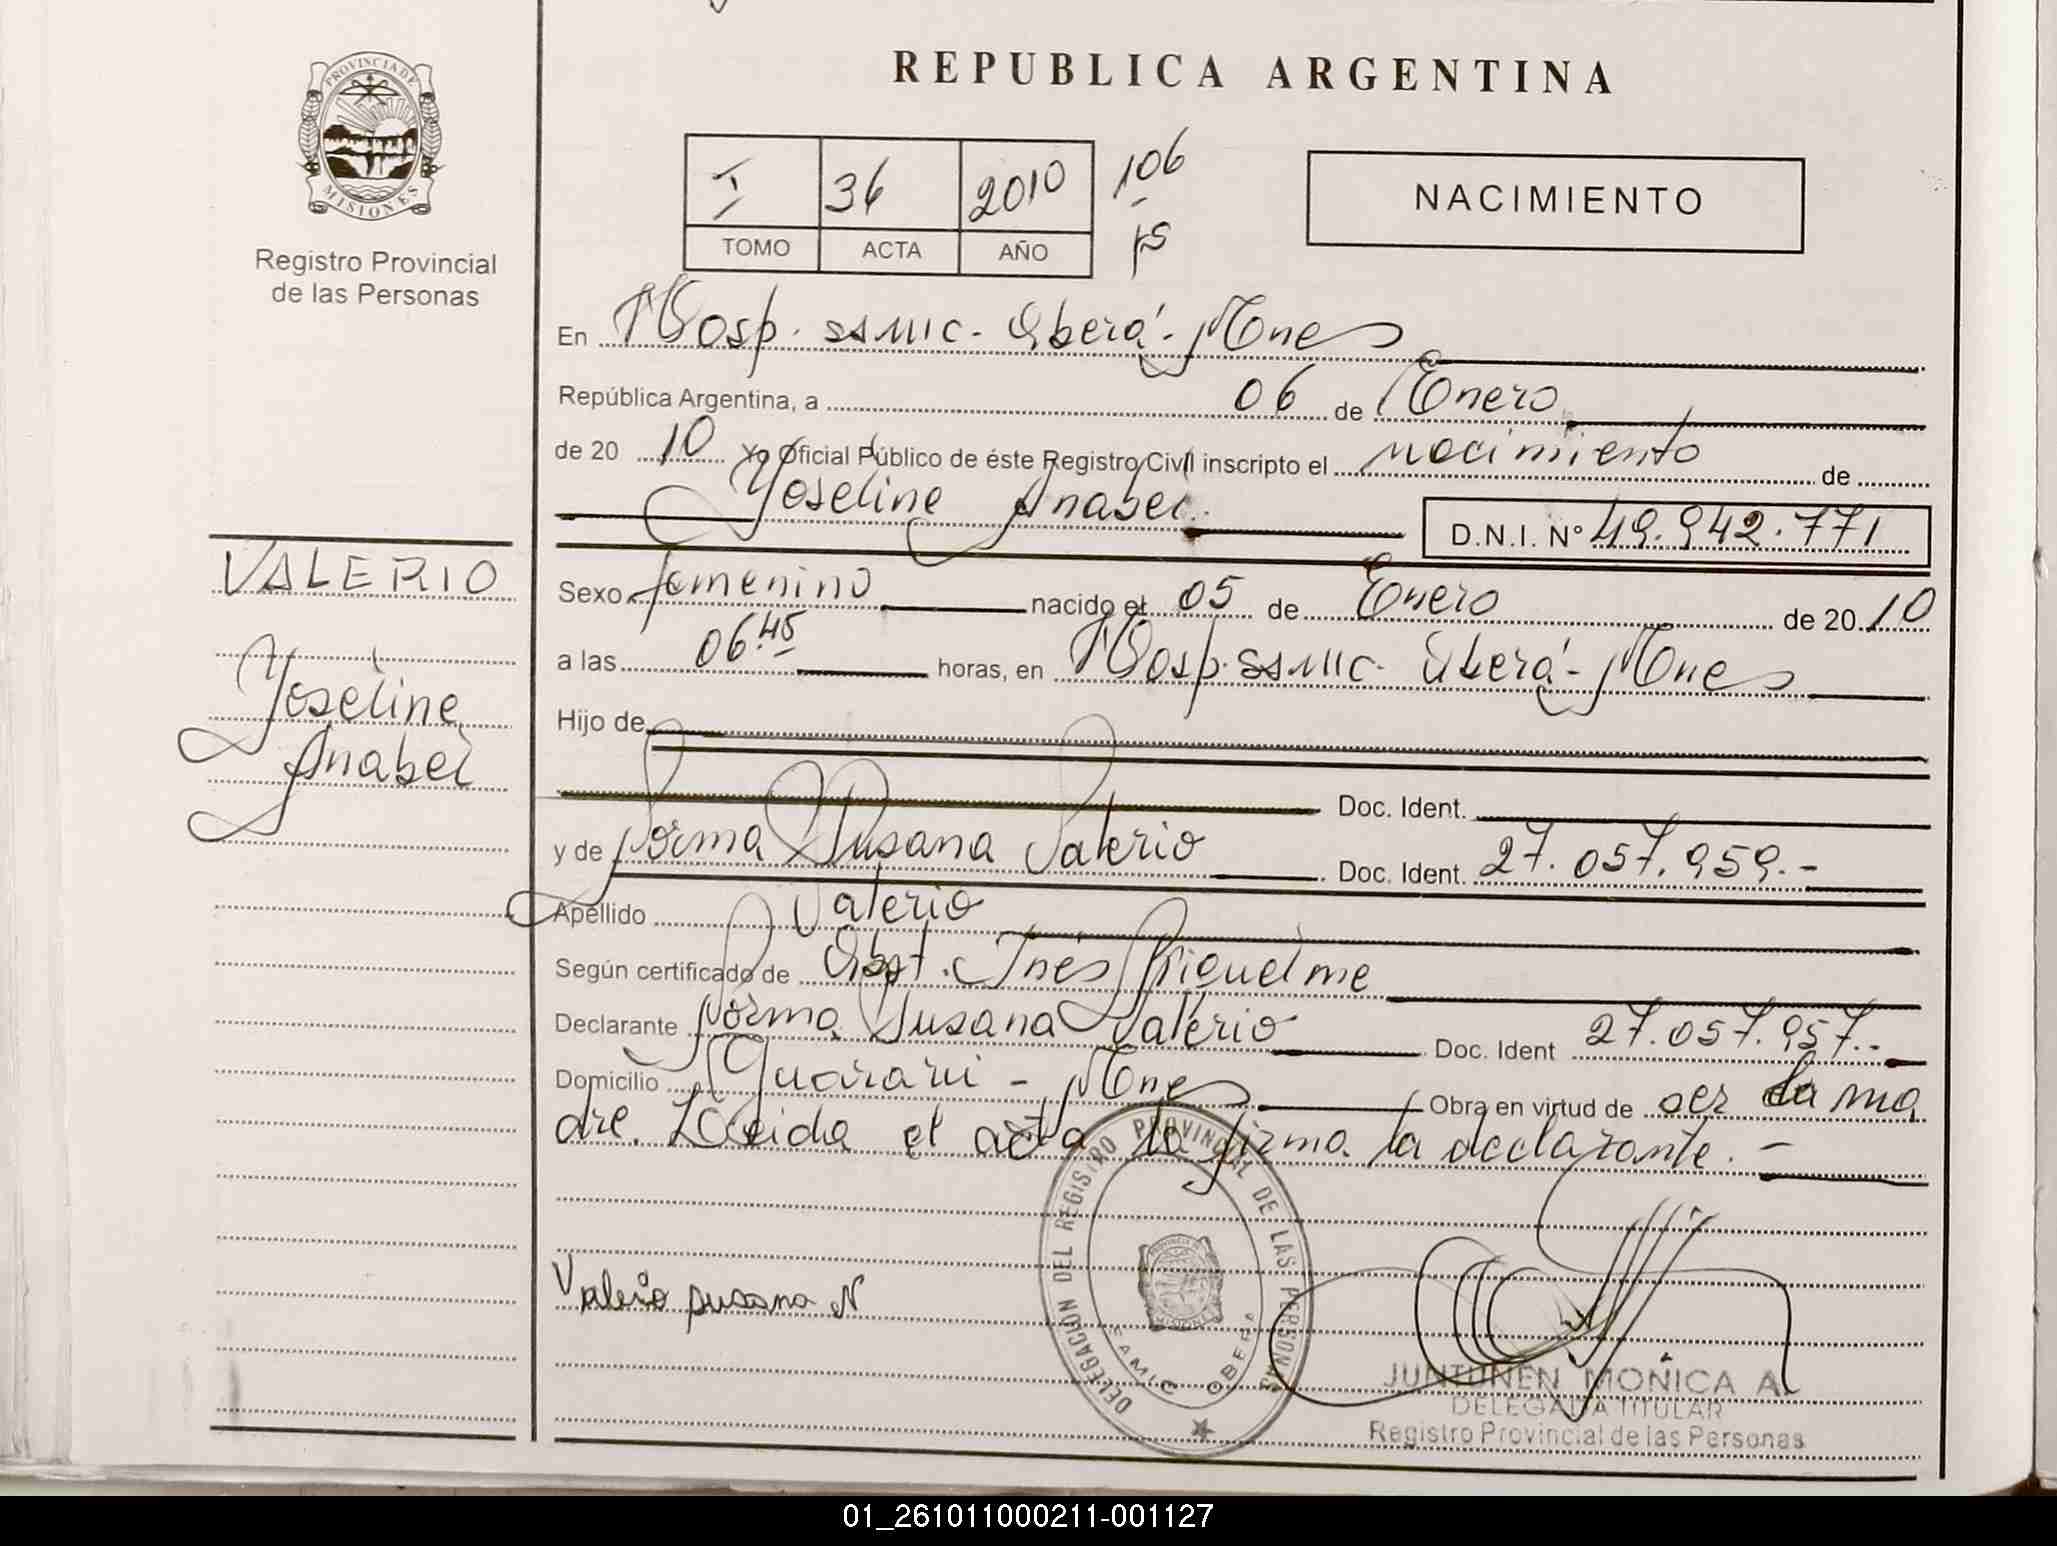 REPUBLICA ARGENTINA
PROVINCIA DE
MISIONES
Registro Provincial
de las Personas
I 36 2010 106
TOMO ACTA AÑO fs
NACIMIENTO
En Hosp. SAMIC. Oberá - Mnes
República Argentina, a 06 de Enero
de 20 10 Yo Oficial Público de éste Registro Civil inscripto el nacimiento de
Yoseline Anabel D.N.I. Nº 49.942.771
VALERIO
Yoseline
Anabel
Sexo femenino nacido el 05 de Enero de 20 10
a las 06.45 horas, en Hosp. SAMIC. Oberá - Mnes
Hijo de
Doc. Ident.
y de Norma Susana Valerio Doc. Ident. 27.057.959.-
Apellido Valerio
Según certificado de Obst. Inés Riquelme
Declarante Norma Susana Valerio Doc. Ident 27.057.957.-
Domicilio Guaraní - Mnes Obra en virtud de ser la ma
dre. Leída el acta la firma la declarante. -
Valerio Susana N
DELEGACION DEL REGISTRO PROVINCIAL DE LAS PERSONAS
SAMIC OBERA
JUNTUNEN MONICA A.
DELEGADA TITULAR
Registro Provincial de las Personas
01_261011000211-001127